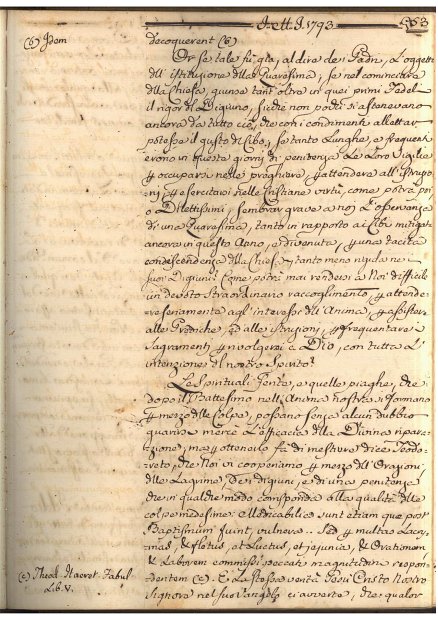 Lett. I. 1793.
553
(b) Idem
decoquerent (b)
Or se tale fù già, al dire de i Padri, l'oggetto
dell'istituzione della Quaresima; se nel cominciare
della Chiesa, giunse tant'oltre in quei primi Fedeli
il rigor di Digiuno, sicchè non pochi si astenevano
ancora da tutto ciò, che con i condimenti allettar
potesse il gusto di Cibo; se tanto Lunghe, e frequenti
erono in questi giorni di penitenza Le Loro Vigilie
occuparsi nelle preghiere, attendere all'istruzio
esercitarsi nelle Cristiane virtù, come potrà poi
o Dilettissimi, sembrar grave a noi L'osservanza
di una Quaresima, tanto in rapporto ai Cibi mitigata
ancora in questo Anno, e divenuta, una tacita
condiscendenza della Chiesa tanto meno rigida nei
suoi Digiuni? Come potrà mai rendersi a Noi difficile
un devoto straordinario raccoglimento, attendere
seriamente agl'interessi dell'Anima, assistere
alle Prediche, alle istruzioni, frequentare i
Sagramenti rivolgersi a Dio, con tutta L'
intenzione del nostro Spirito?
Le Spirituali ferite, e quelle piaghe, che
dopo il Battesimo nell'Anima nostra si formano
mezzo della Colpa, possano senza alcun dubbio
guarirsi mercè L'efficacia della Divina ripara-
zione, ma ottenerlo fà di mestiere dice Teodo-
reto, che Noi vi cooperiamo mezzo dell'Orazioni,
delle Lagrime, dei digiuni, e di una penitenza
che in qualche modo corrisponda alla qualità delle
colpe medesime. Medicabilia sunt etiam que post
Baptismum fiunt, vulnera .. sed multas Lacry-
mas, & fletus, et Luctus, et jejunia, & Orationem
& Laborem commissi peccati magnitudini respon-
dentem (c). E La stessa verità Gesù Cristo Nostro
Signore nel suo Vangelo ci avverte, che qualor
(c) Theod. Haeret. Fabul
Lib. V.